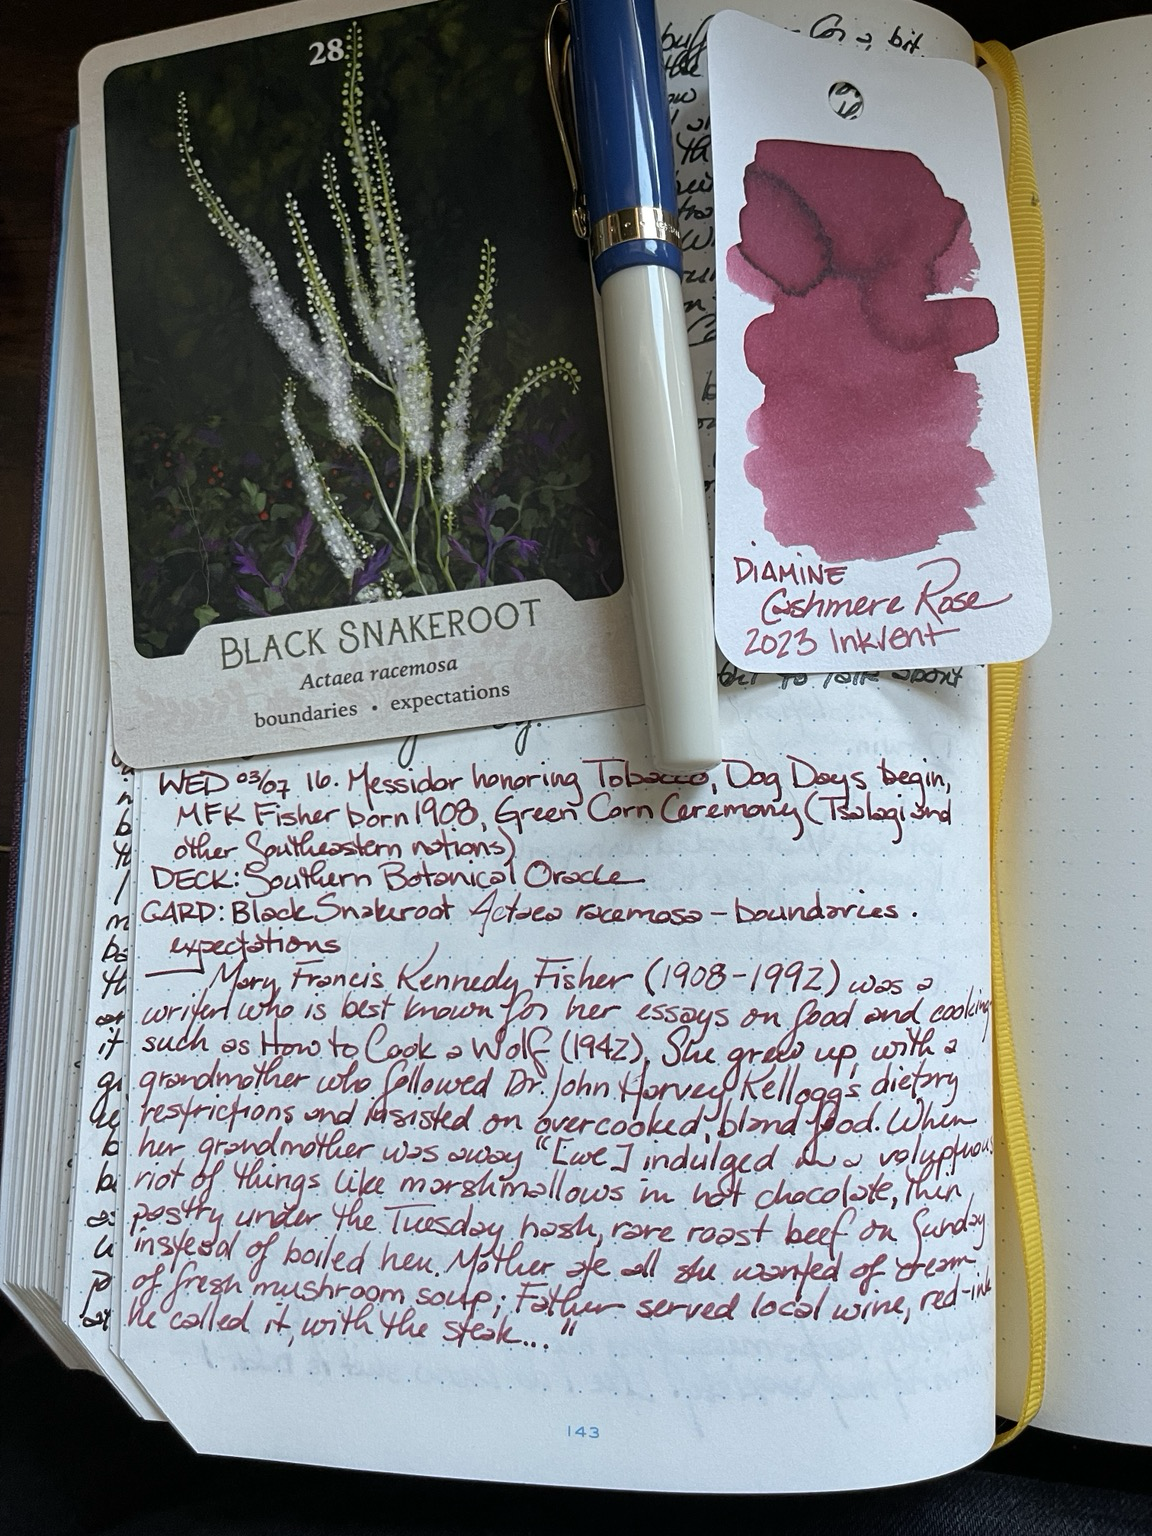 28
BLACK SNAKEROOT
Actaea racemosa
boundaries • expectations
DIAMINE
Cashmere Rose
2023 Inkvent
to talk about
WED 03/07 16. Messidor honoring Tobacco, Dog Days begin,
MFK Fisher born 1908, Green Corn Ceremony (Tsalagi and
other Southeastern nations)
DECK: Southern Botanical Oracle
CARD: Black Snakeroot Actaea racemosa - boundaries .
expectations
Mary Francis Kennedy Fisher (1908-1992) was a
writer who is best known for her essays on food and cooking
such as How to Cook a Wolf (1942). She grew up with a
grandmother who followed Dr. John Harvey Kellogg's dietary
restrictions and insisted on overcooked, bland food. When
her grandmother was away "[we] indulged in a voluptuous
riot of things like marshmallows in hot chocolate, thin
pastry under the Tuesday hash, rare roast beef on Sunday
instead of boiled hen. Mother ate all she wanted of cream
of fresh mushroom soup; Father served local wine, red-ink
he called it, with the steak..."
143